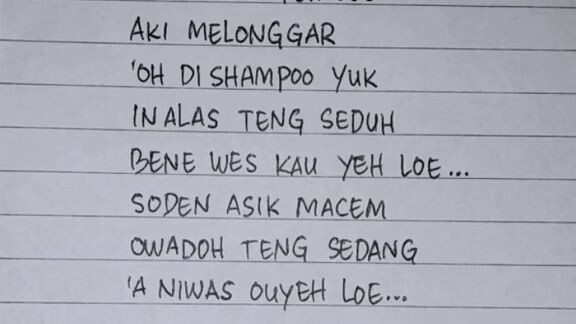 AKI MELONGGAR
'OH DI SHAMPOO YUK
IN ALAS TENG SEDUH
BENE WES KAU YEH LOE...
SODEN ASIK MACEM
OWADOH TENG SEDANG
'A NIWAS OUYEH LOE...